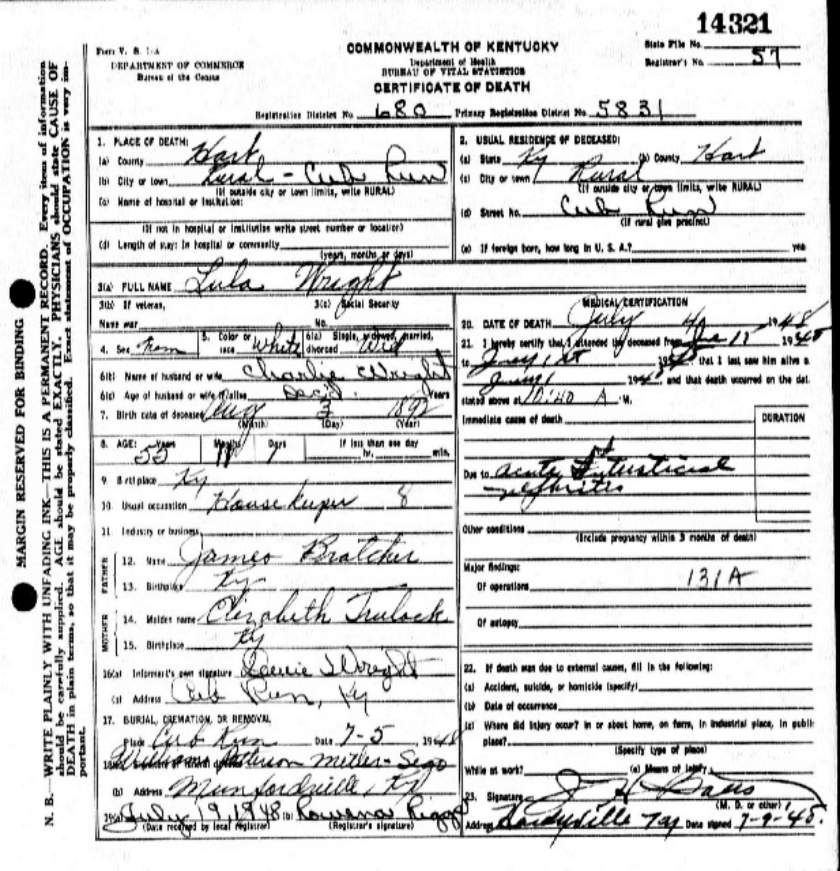 14321
Form V. S. 1-A
COMMONWEALTH OF KENTUCKY
State File No.
DEPARTMENT OF COMMERCE
Department of Health
Registrar's No. 57
Bureau of the Census
BUREAU OF VITAL STATISTICS
CERTIFICATE OF DEATH
Registration District No 680 Primary Registration District No. 5831
1. PLACE OF DEATH:
(a) County Hart
(b) City or town Rural - Cub Run
(If outside city or town limits, write RURAL)
(c) Name of hospital or institution:
(If not in hospital or institution write street number or location)
(d) Length of stay: In hospital or community
(years, months or days)
2. USUAL RESIDENCE OF DECEASED:
(a) State Ky (b) County Hart
(c) City or town Rural
(If outside city or town limits, write RURAL)
(d) Street No. Cub Run
(If rural give precinct)
(e) If foreign born, how long in U. S. A.? yrs
3(a) FULL NAME Lula Wright
3(b) If veteran,
3(c) Social Security
Name war
No.
4. Sex Fem 5. Color or race White 6(a) Single, widowed, married, divorced Wid
6(b) Name of husband or wife Charlie Wright
6(c) Age of husband or wife if alive Dec'd. Years
7. Birth date of deceased Aug 3 1892
(Month) (Day) (Year)
8. AGE: Years 55 Months 11 Days 1 If less than one day
hr. min.
9. Birthplace Ky
10. Usual occupation House keeper 8
11. Industry or business
FATHER
12. Name James Bratcher
13. Birthplace Ky
MOTHER
14. Maiden name Elizabeth Trulock
15. Birthplace Ky
16(a) Informant's own signature Wright
(b) Address Cub Run, Ky
17. BURIAL, CREMATION, OR REMOVAL
Place Cub Run Date 7-5 1948
(b) Address Munfordville, Ky
19(a) July 19, 1948 (b) Rowena
(Date received by local registrar) (Registrar's signature)
MEDICAL CERTIFICATION
20. DATE OF DEATH July 4 1948
21. I hereby certify that I attended the deceased from
that I last saw him alive on
and that death occurred on the date
stated above at 10:40 A M.
Immediate cause of death
DURATION
Due to acute Interstitial
nephritis
Other conditions
(Include pregnancy within 3 months of death)
Major findings:
Of operations 131A
Of autopsy
22. If death was due to external causes, fill in the following:
(a) Accident, suicide, or homicide (specify)
(b) Date of occurrence
(c) Where did injury occur? In or about home, on farm, in industrial place, in public
place?
(Specify type of place)
While at work? (e) Means of injury
23. Signature
(M. D. or other)
Address Hardyville Ky Date signed 7-9-48.
MARGIN RESERVED FOR BINDING
N. B.—WRITE PLAINLY WITH UNFADING INK—THIS IS A PERMANENT RECORD. Every item of information
should be carefully supplied. AGE should be stated EXACTLY. PHYSICIANS should state CAUSE OF
DEATH in plain terms, so that it may be properly classified. Exact statement of OCCUPATION is very im-
portant.